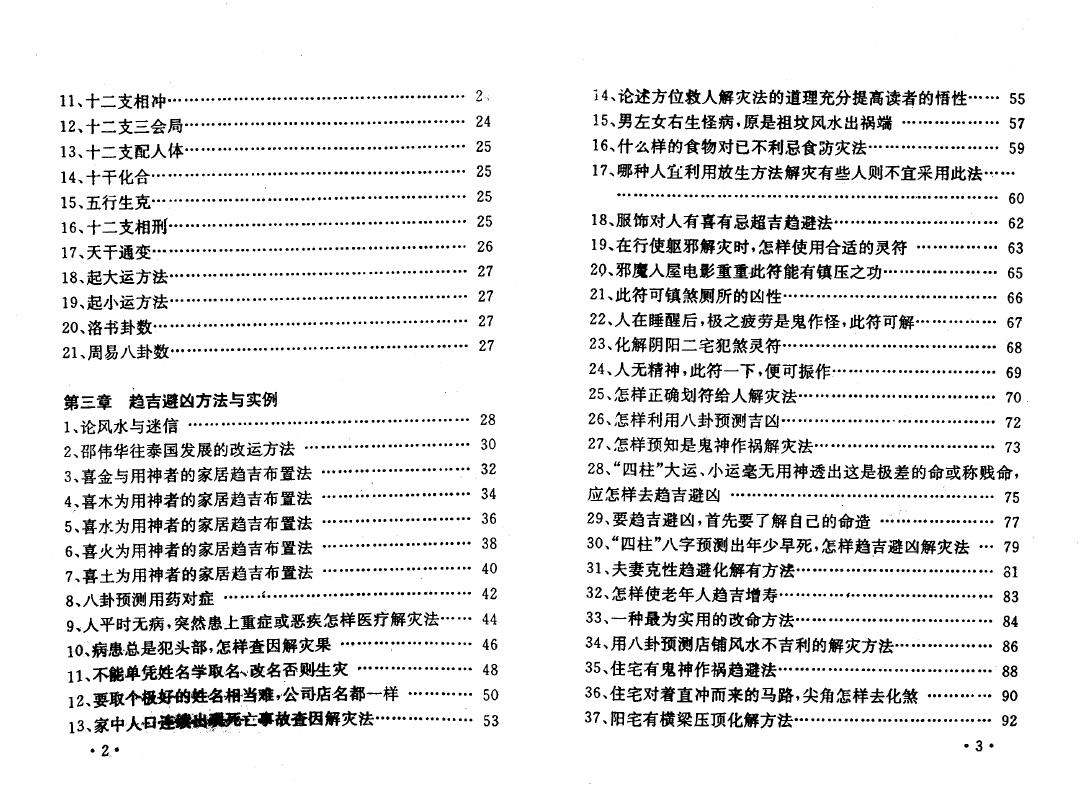 11、十二支相冲………………………………… 2
12、十二支三会局……………………………… 24
13、十二支配人体……………………………… 25
14、十干化合…………………………………… 25
15、五行生克…………………………………… 25
16、十二支相刑………………………………… 25
17、天干通变…………………………………… 26
18、起大运方法………………………………… 27
19、起小运方法………………………………… 27
20、洛书卦数…………………………………… 27
21、周易八卦数………………………………… 27
第三章 趋吉避凶方法与实例
1、论风水与迷信 ……………………………… 28
2、邵伟华往泰国发展的改运方法 …………… 30
3、喜金与用神者的家居趋吉布置法 ………… 32
4、喜木为用神者的家居趋吉布置法 ………… 34
5、喜水为用神者的家居趋吉布置法 ………… 36
6、喜火为用神者的家居趋吉布置法 ………… 38
7、喜土为用神者的家居趋吉布置法 ………… 40
8、八卦预测用药对症 ………………………… 42
9、人平时无病,突然患上重症或恶疾怎样医疗解灾法…… 44
10、病患总是犯头部,怎样查因解灾果 ………… 46
11、不能单凭姓名学取名、改名否则生灾 ……… 48
12、要取个极好的姓名相当难,公司店名都一样 ……… 50
13、家中人口连续出现死亡事故查因解灾法………… 53
·2·
14、论述方位救人解灾法的道理充分提高读者的悟性…… 55
15、男左女右生怪病,原是祖坟风水出祸端 ………… 57
16、什么样的食物对已不利忌食防灾法……………… 59
17、哪种人宜利用放生方法解灾有些人则不宜采用此法……
………………………………………………… 60
18、服饰对人有喜有忌超吉趋避法………………… 62
19、在行使躯邪解灾时,怎样使用合适的灵符 ……… 63
20、邪魔入屋电影重重此符能有镇压之功………… 65
21、此符可镇煞厕所的凶性……………………… 66
22、人在睡醒后,极之疲劳是鬼作怪,此符可解……… 67
23、化解阴阳二宅犯煞灵符……………………… 68
24、人无精神,此符一下,便可振作……………… 69
25、怎样正确划符给人解灾法…………………… 70
26、怎样利用八卦预测吉凶……………………… 72
27、怎样预知是鬼神作祸解灾法………………… 73
28、“四柱”大运、小运毫无用神透出这是极差的命或称贱命,
应怎样去趋吉避凶 …………………………… 75
29、要趋吉避凶,首先要了解自己的命造 ………… 77
30、“四柱”八字预测出年少早死,怎样趋吉避凶解灾法 … 79
31、夫妻克性趋避化解有方法…………………… 81
32、怎样使老年人趋吉增寿……………………… 83
33、一种最为实用的改命方法…………………… 84
34、用八卦预测店铺风水不吉利的解灾方法……… 86
35、住宅有鬼神作祸趋避法……………………… 88
36、住宅对着直冲而来的马路,尖角怎样去化煞 ……… 90
37、阳宅有横梁压顶化解方法…………………… 92
·3·